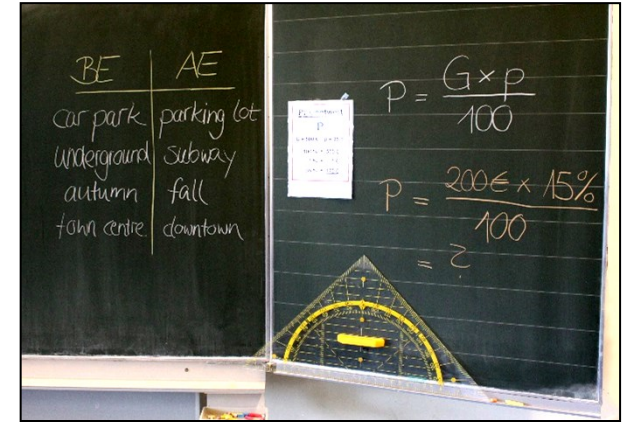 BE AE
car park parking lot
underground subway
autumn fall
town centre downtown
P
P = G x p
100
P = 200€ x 15%
100
= ?